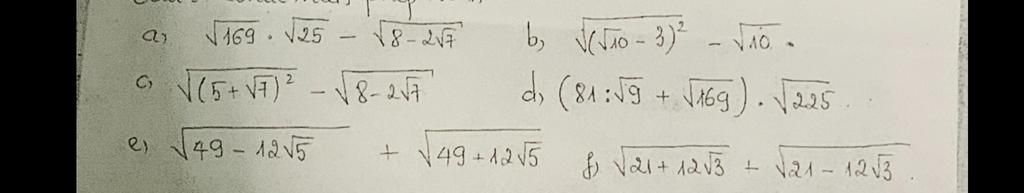 a, √169 . √25 - √(8-2√7) b, √((√10 - 3)²) - √10.
c, √((5+√7)²) - √(8-2√7) d, (81:√9 + √169) . √225
e, √(49-12√5) + √(49+12√5) f) √(21+12√3) + √(21-12√3).